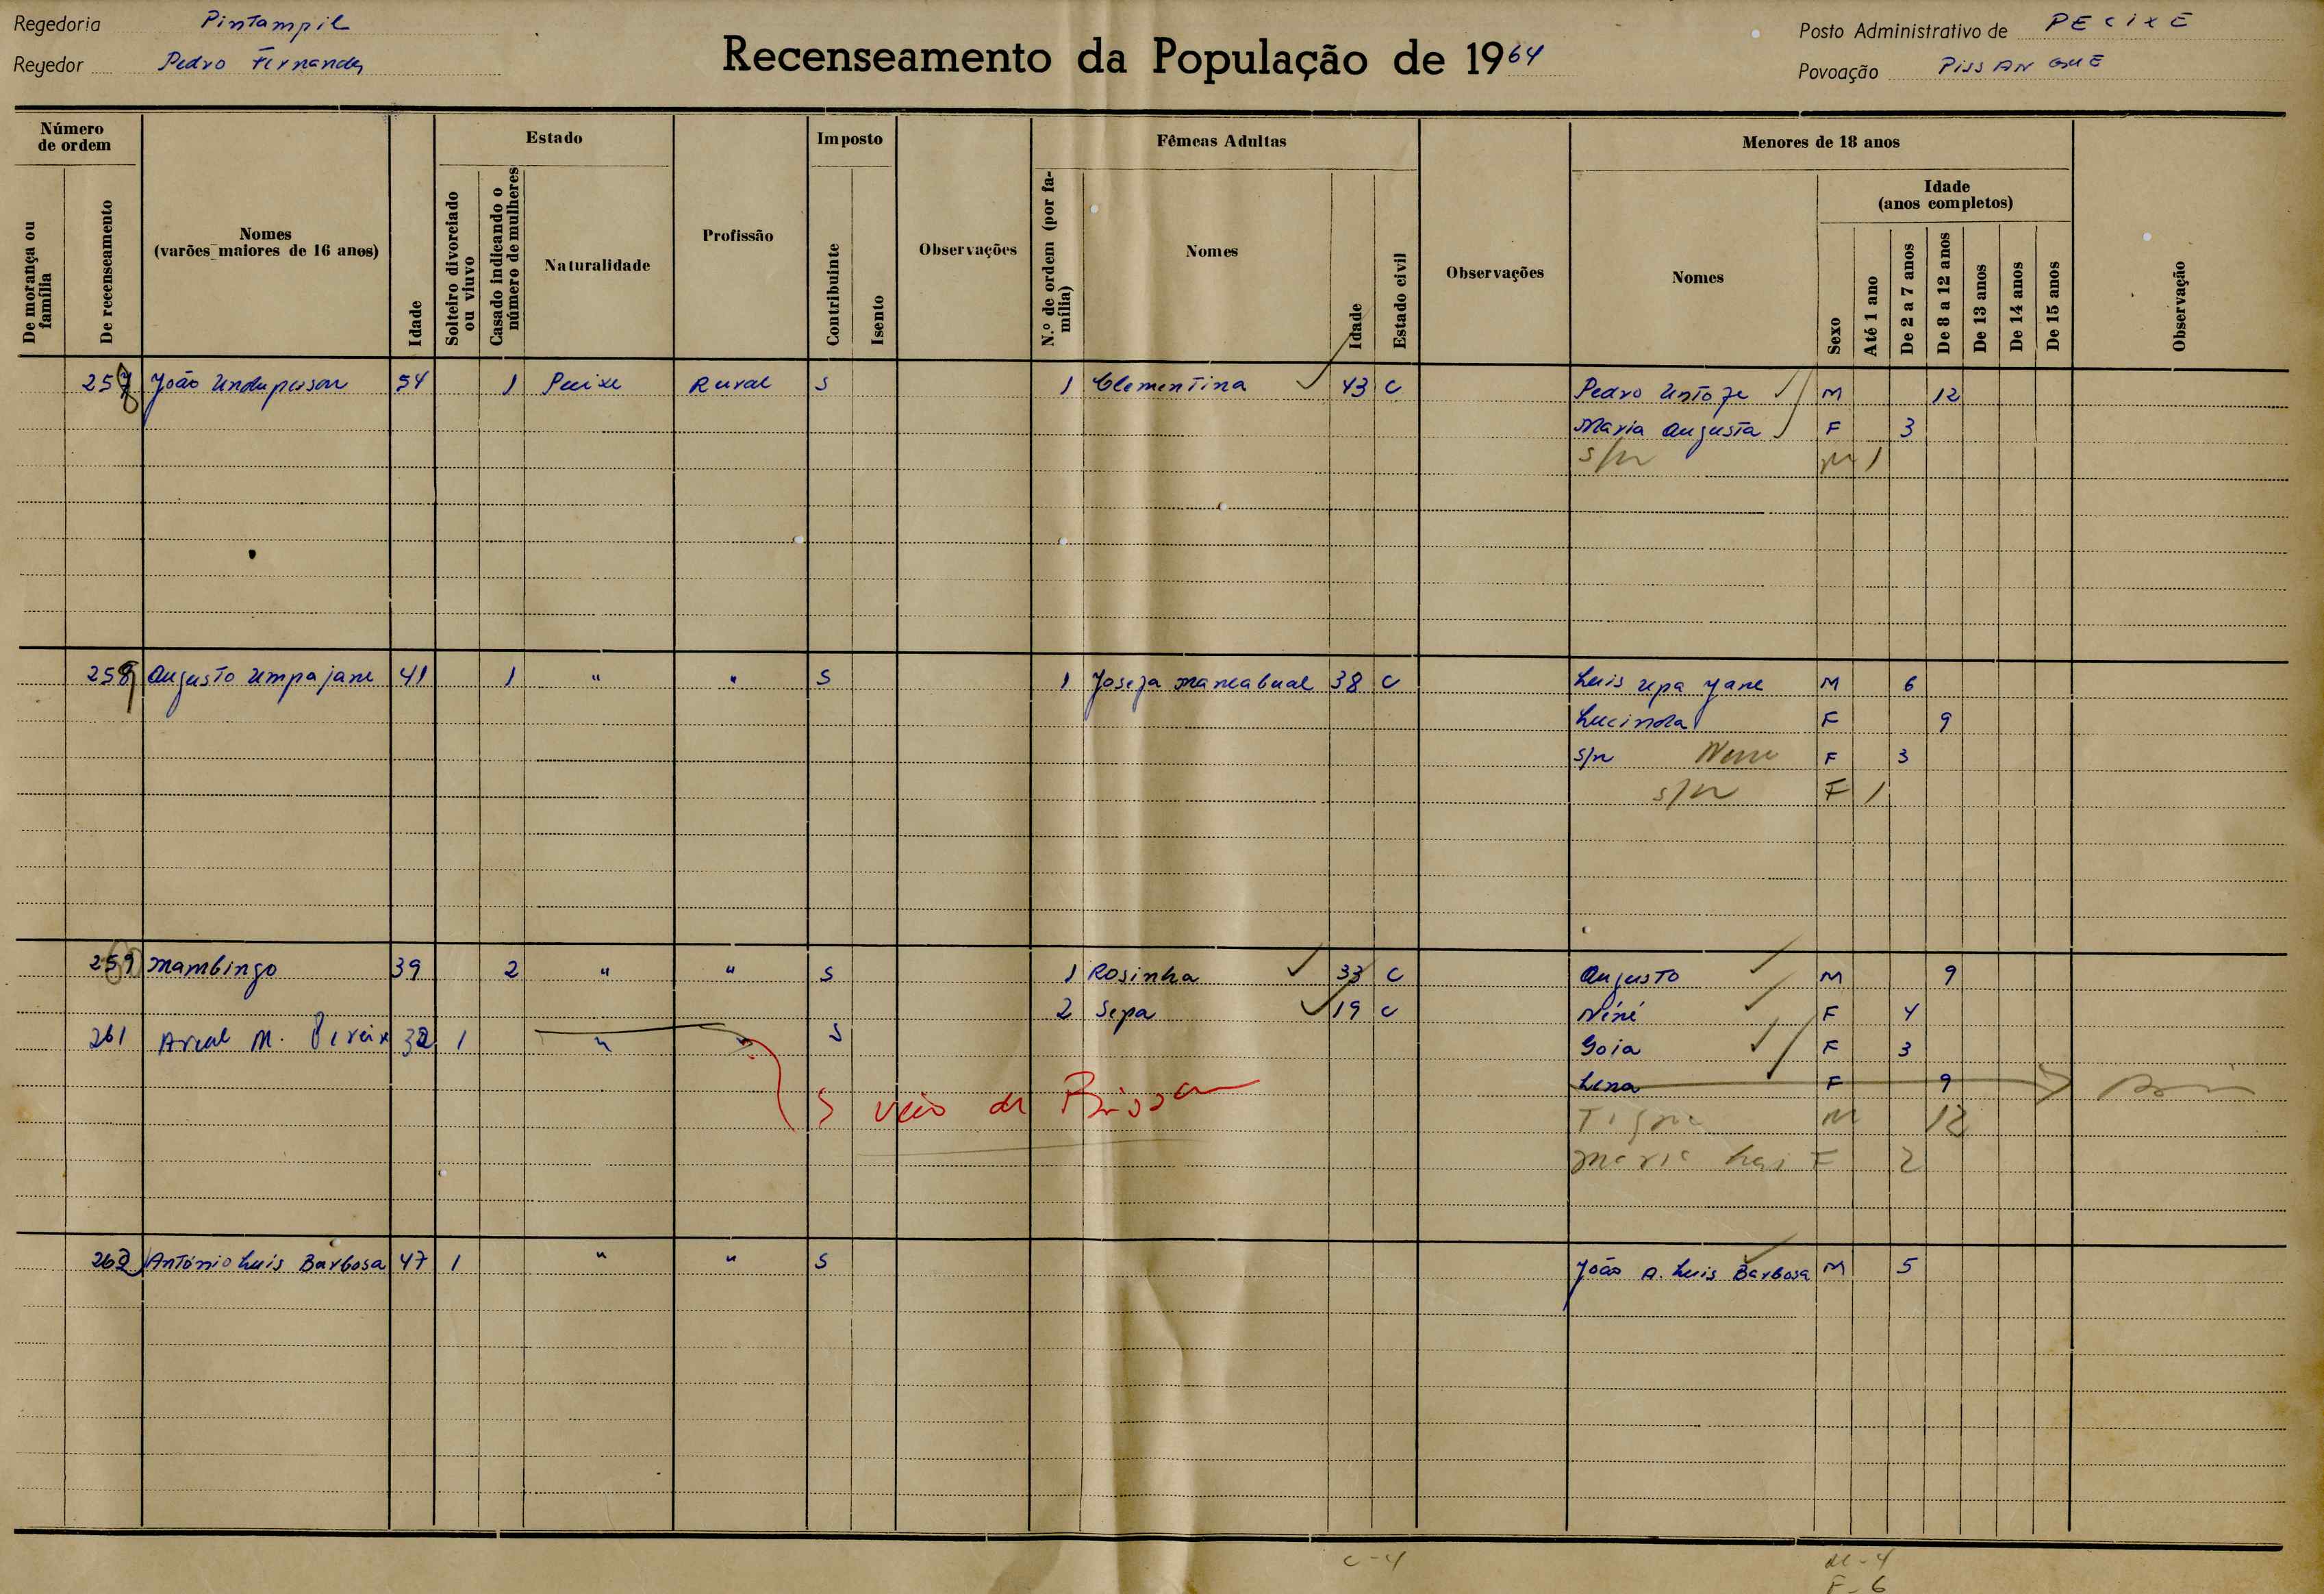 Regedoria Pintampil
Regedor Pedro Fernandes
Recenseamento da População de 1964
Posto Administrativo de PECIXE
Povoação PISSANQUE
Número de ordem
De morança ou família
De recenseamento
Nomes (varões maiores de 16 anos)
Idade
Estado
Solteiro divorciado ou viuvo
Casado indicando o número de mulheres
Naturalidade
Profissão
Imposto
Contribuinte
Isento
Observações
Fêmeas Adultas
N.º de ordem (por família)
Nomes
Idade
Estado civil
Observações
Menores de 18 anos
Nomes
Sexo
Idade (anos completos)
Até 1 ano
De 2 a 7 anos
De 8 a 12 anos
De 13 anos
De 14 anos
De 15 anos
Observação
João 54 1 Pecixe Rural S 1 Clementina 43 C Pedro M 12
Maria Augusta F 3
s/n M 1
Augusto Umpajane 41 1 " " S 1 38 C Luis Upa Yane M 6
Lucinda F 9
s/n F 3
s/n F 1
Mambingo 39 2 " " S 1 Rosinha 33 C Augusto M 9
2 Sepa 19 C Néné F 4
261 M. 1 " S Goia F 3
Lena F 9
S veio de Bissau
M 12
Maria F 2
262 António Luis Barbosa 47 1 " " S João A. Luis Barbosa M 5
C-4
M-4
F-6